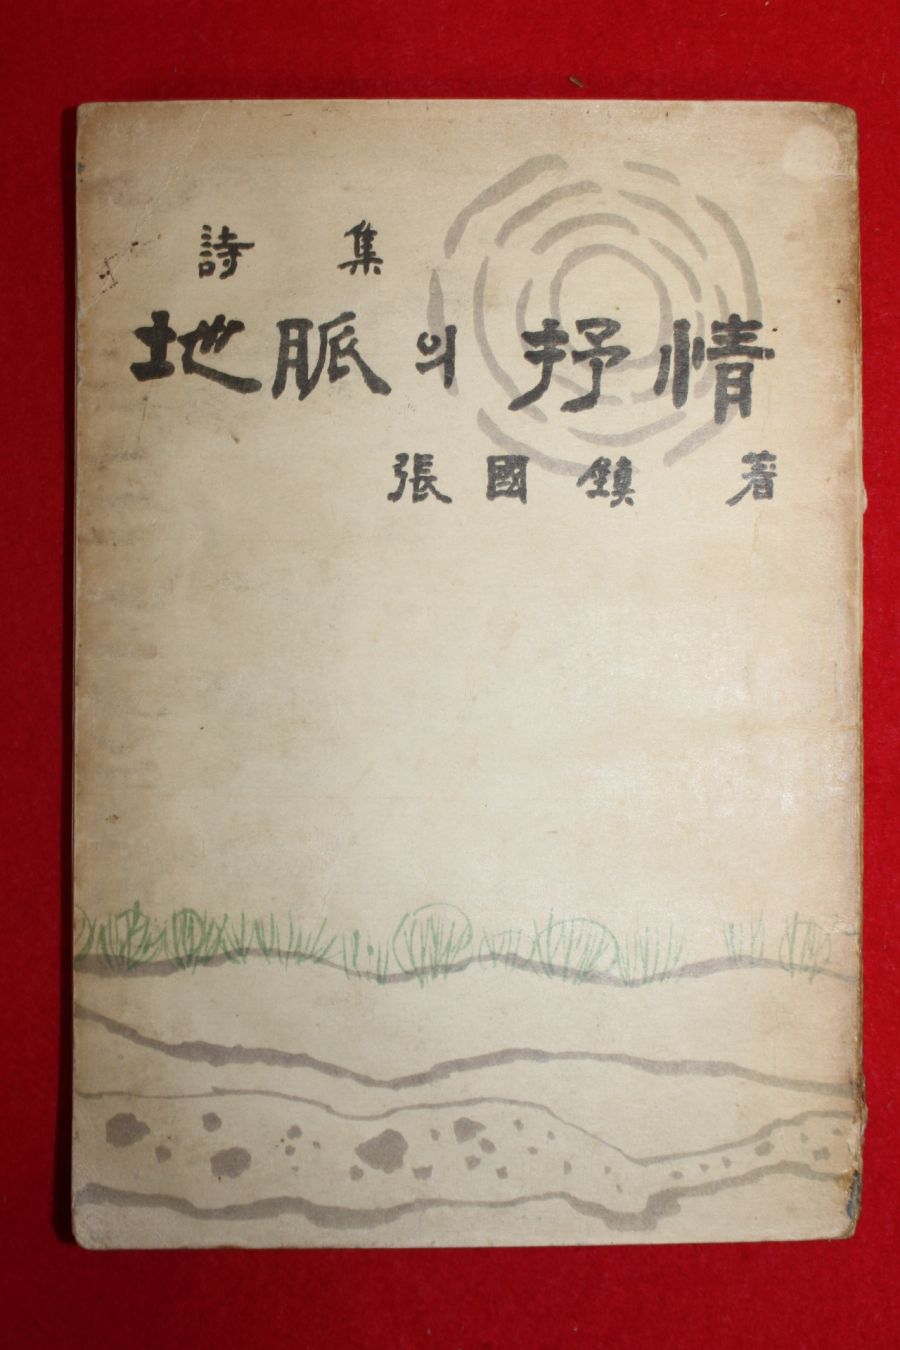 詩集
地脈의 抒情
張國鎮 著